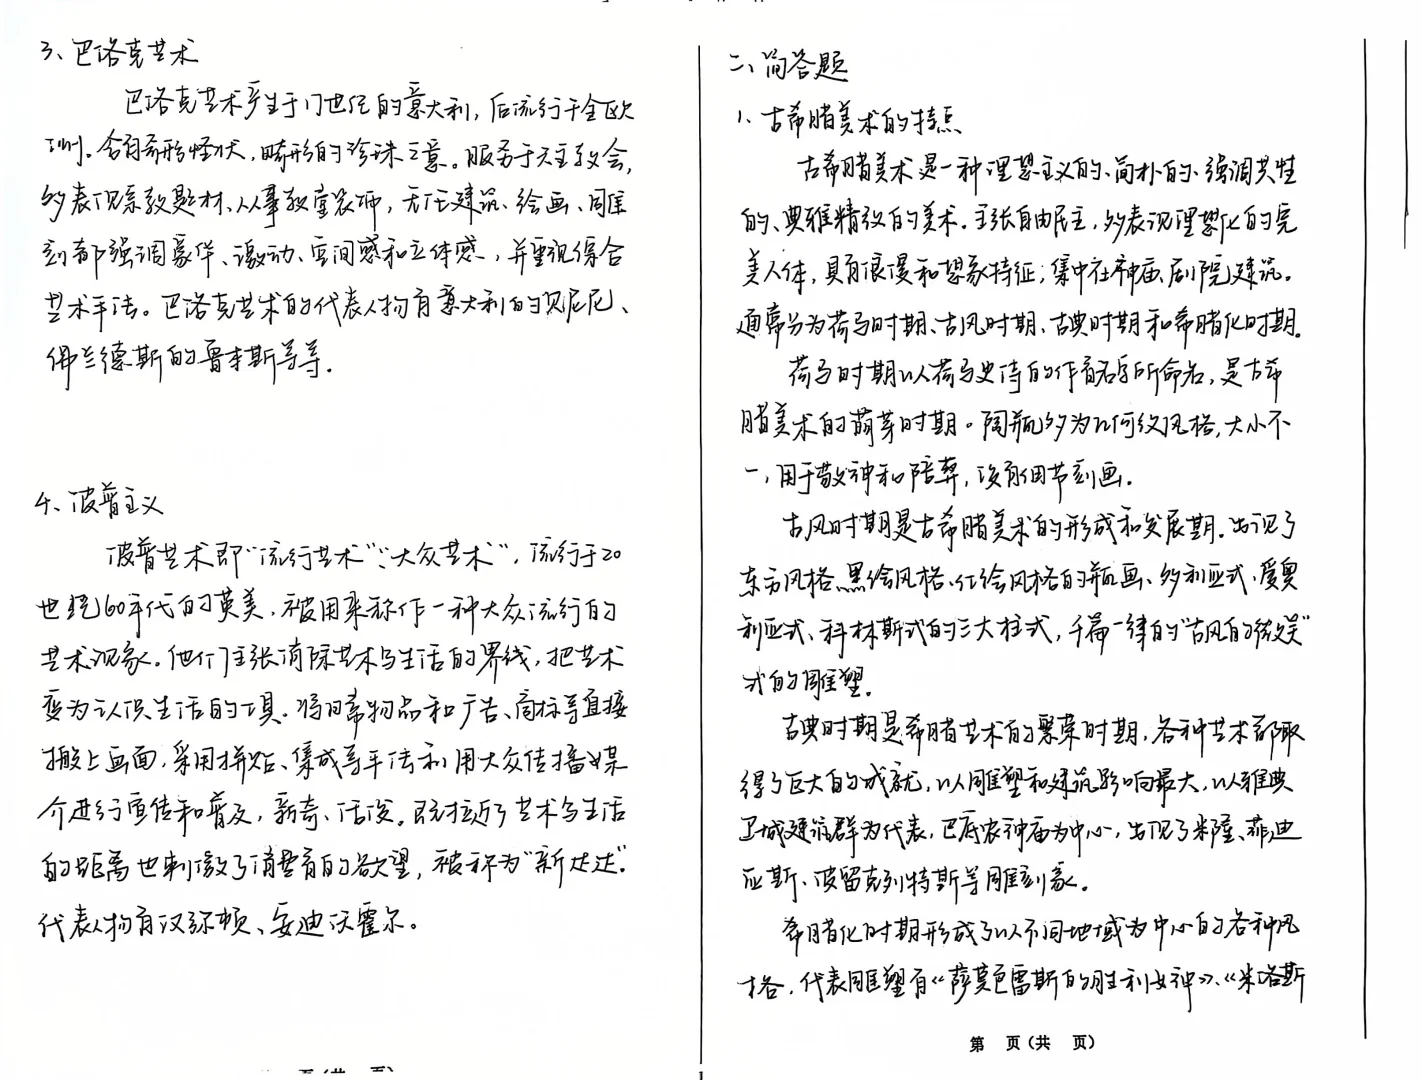 3、巴洛克艺术
巴洛克艺术产生于17世纪的意大利，后流行于全欧
洲。含有奇形怪状，畸形的珍珠之意。服务于天主教会，
多表现宗教题材，从事教堂装饰，无任建筑、绘画、雕
刻都强调豪华、激动、空间感和立体感，并重视综合
艺术手法。巴洛克艺术的代表人物有意大利的贝尼尼、
佛兰德斯的鲁本斯等等.
4、波普主义
波普艺术即“流行艺术”、“大众艺术”，流行于20
世纪60年代的英美，被用来称作一种大众流行的
艺术现象。他们主张消除艺术与生活的界线，把艺术
变为认识生活的工具.将日常物品和广告、商标等直接
搬上画面，采用拼贴、集成等手法利用大众传播媒
介进行宣传和普及，新奇、活泼。既拉近了艺术与生活
的距离也刺激了消费者的欲望，被称为“新达达”.
代表人物有汉弥顿、安迪沃霍尔。
二、简答题
1、古希腊美术的特点
古希腊美术是一种理想主义的、简朴的、强调共性
的、典雅精致的美术.主张自由民主，多表现理想化的完
美人体，具有浪漫和想象特征；集中在神庙、剧院建筑。
通常分为荷马时期、古风时期、古典时期和希腊化时期.
荷马时期以荷马史诗的作者名字所命名，是古希
腊美术的萌芽时期。陶瓶多为几何纹风格，大小不
一，用于敬神和陪葬，没有细节刻画.
古风时期是古希腊美术的形成和发展期.出现了
东方风格、黑绘风格、红绘风格的瓶画、多利亚式、爱奥
利亚式、科林斯式的三大柱式，千篇一律的“古风的微笑”
式的雕塑.
古典时期是希腊艺术的繁荣时期，各种艺术都取
得了巨大的成就，以雕塑和建筑影响最大，以雅典
卫城建筑群为代表，巴底农神庙为中心，出现了米隆、菲迪
亚斯、波留克列特斯等雕刻家。
希腊化时期形成了以不同地域为中心的各种风
格，代表雕塑有《萨莫色雷斯的胜利女神》、《米洛斯
第 页(共 页)
页(共 页)